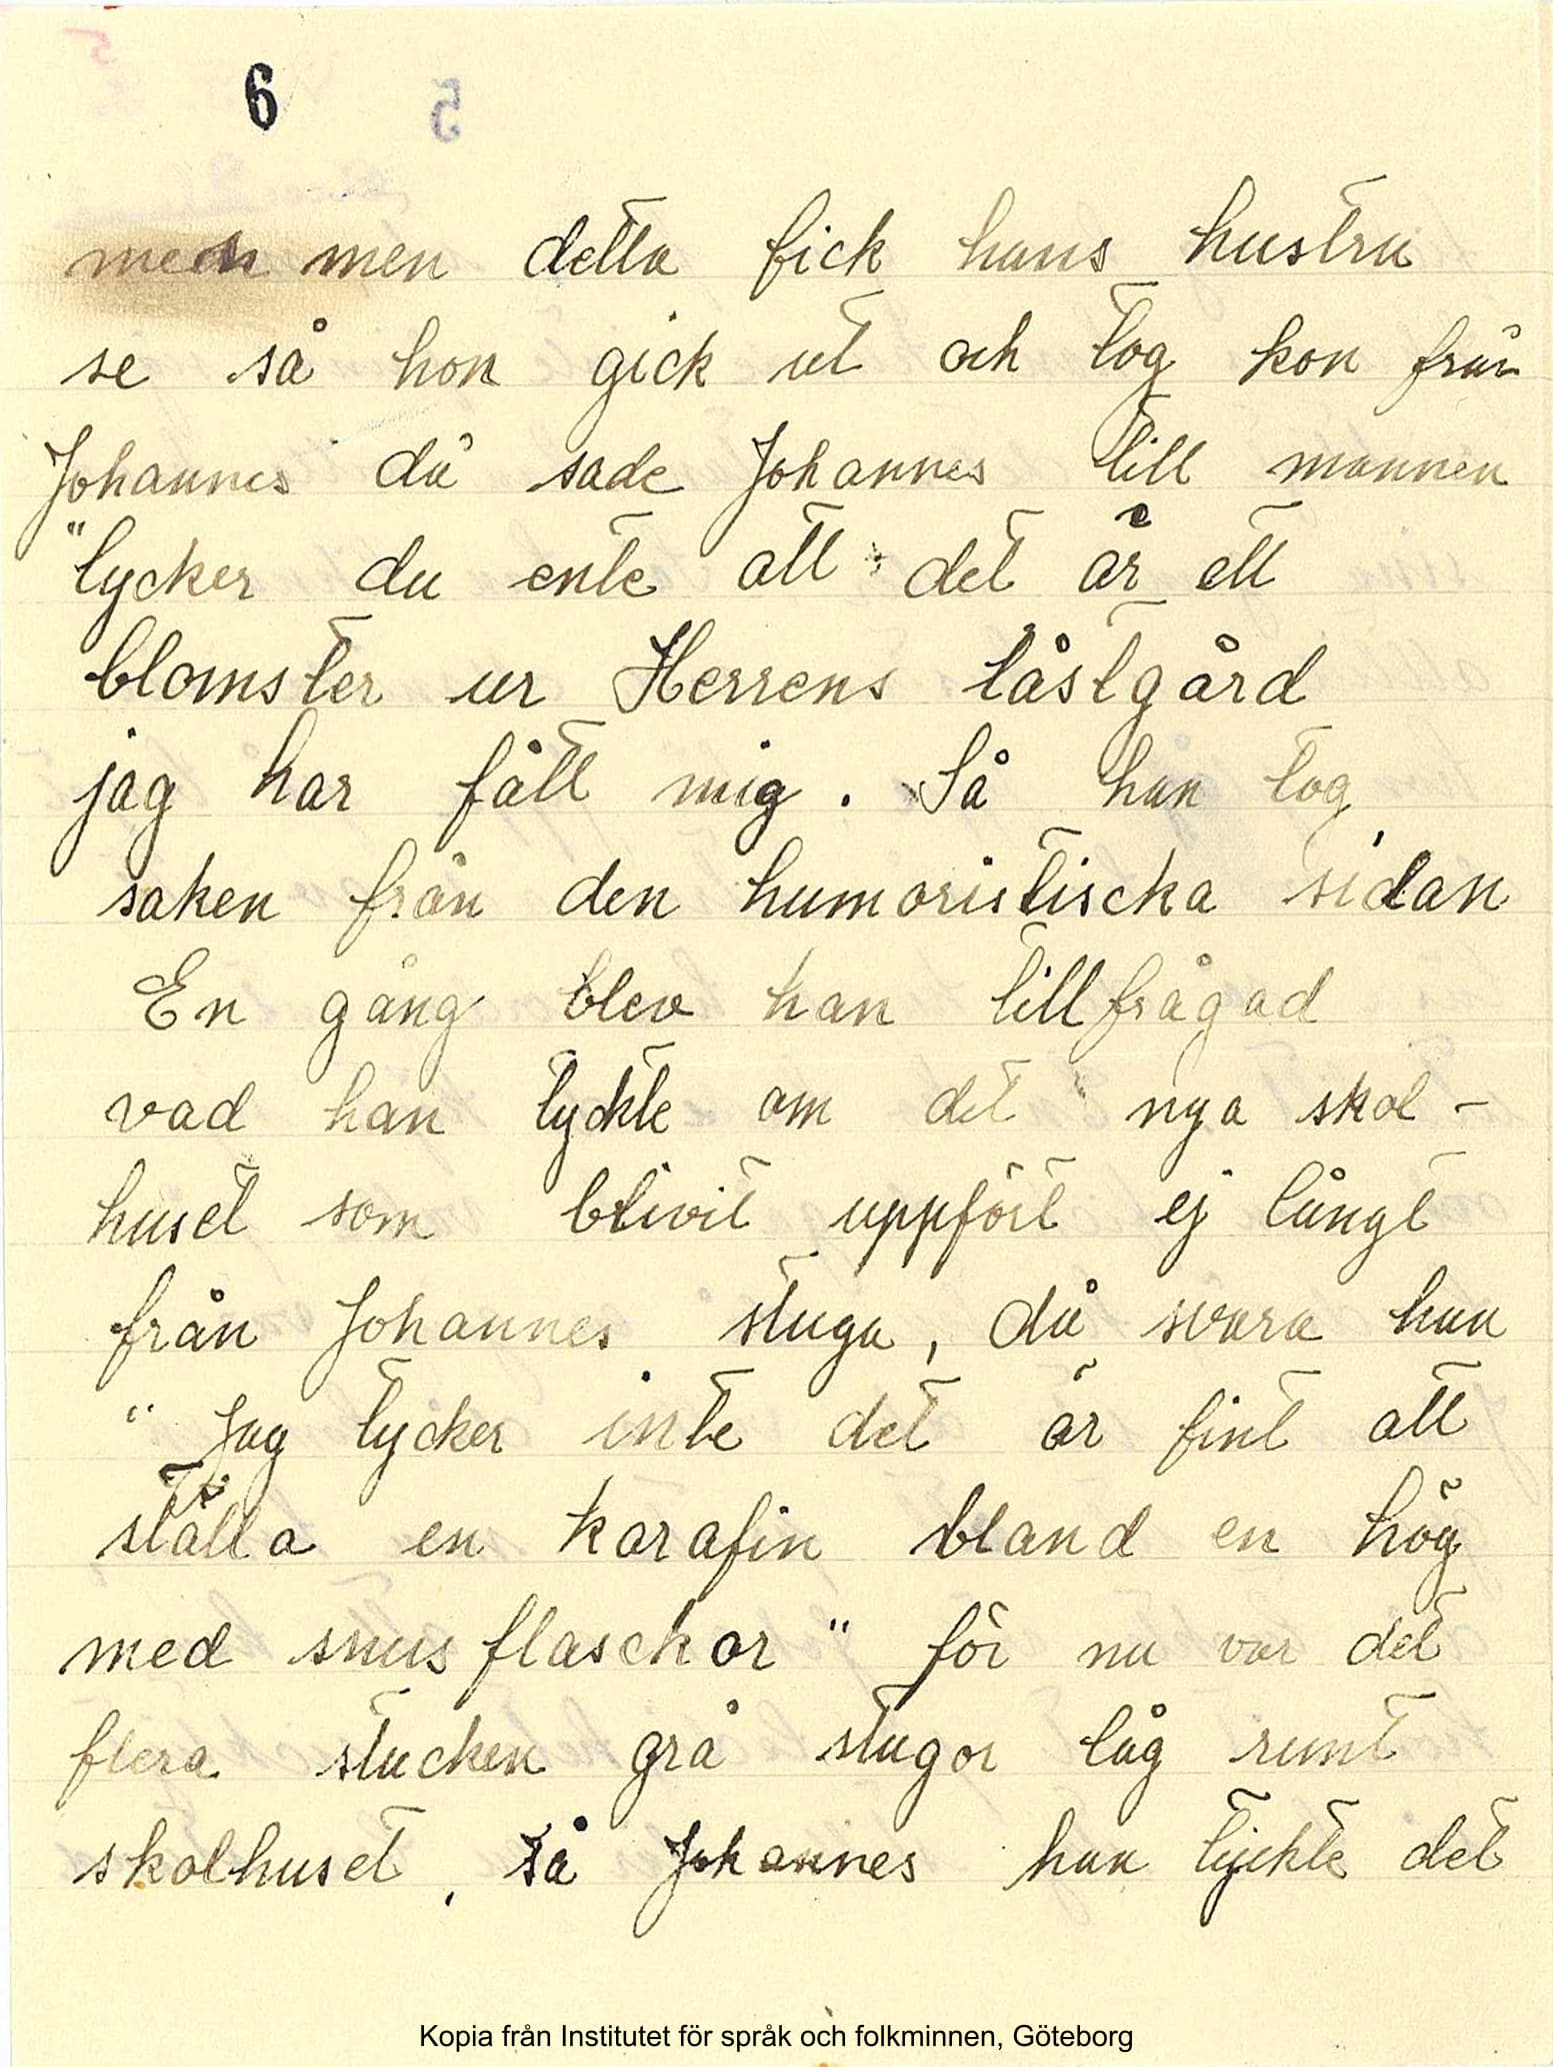 6 5
men men detta fick hans hustru
se så hon gick ut och tog kon från
Johannes då sade Johannes till mannen
"tycker du ente att det är ett
blomster ur Herrens låstgård
jag har fått mig. Så han tog
saken från den humoristiscka sidan
En gång blev han tillfrågad
vad han tyckte om det nya skol-
huset som blivit uppfört ej långt
från Johannes stuga, då svara han
"Jag tycker inte det är fint att
ställa en karafin bland en hög
med snusflasckor" för nu var det
flera stucken grå stugor låg runt
skolhuset, så Johannes han tyckte det
Kopia från Institutet för språk och folkminnen, Göteborg